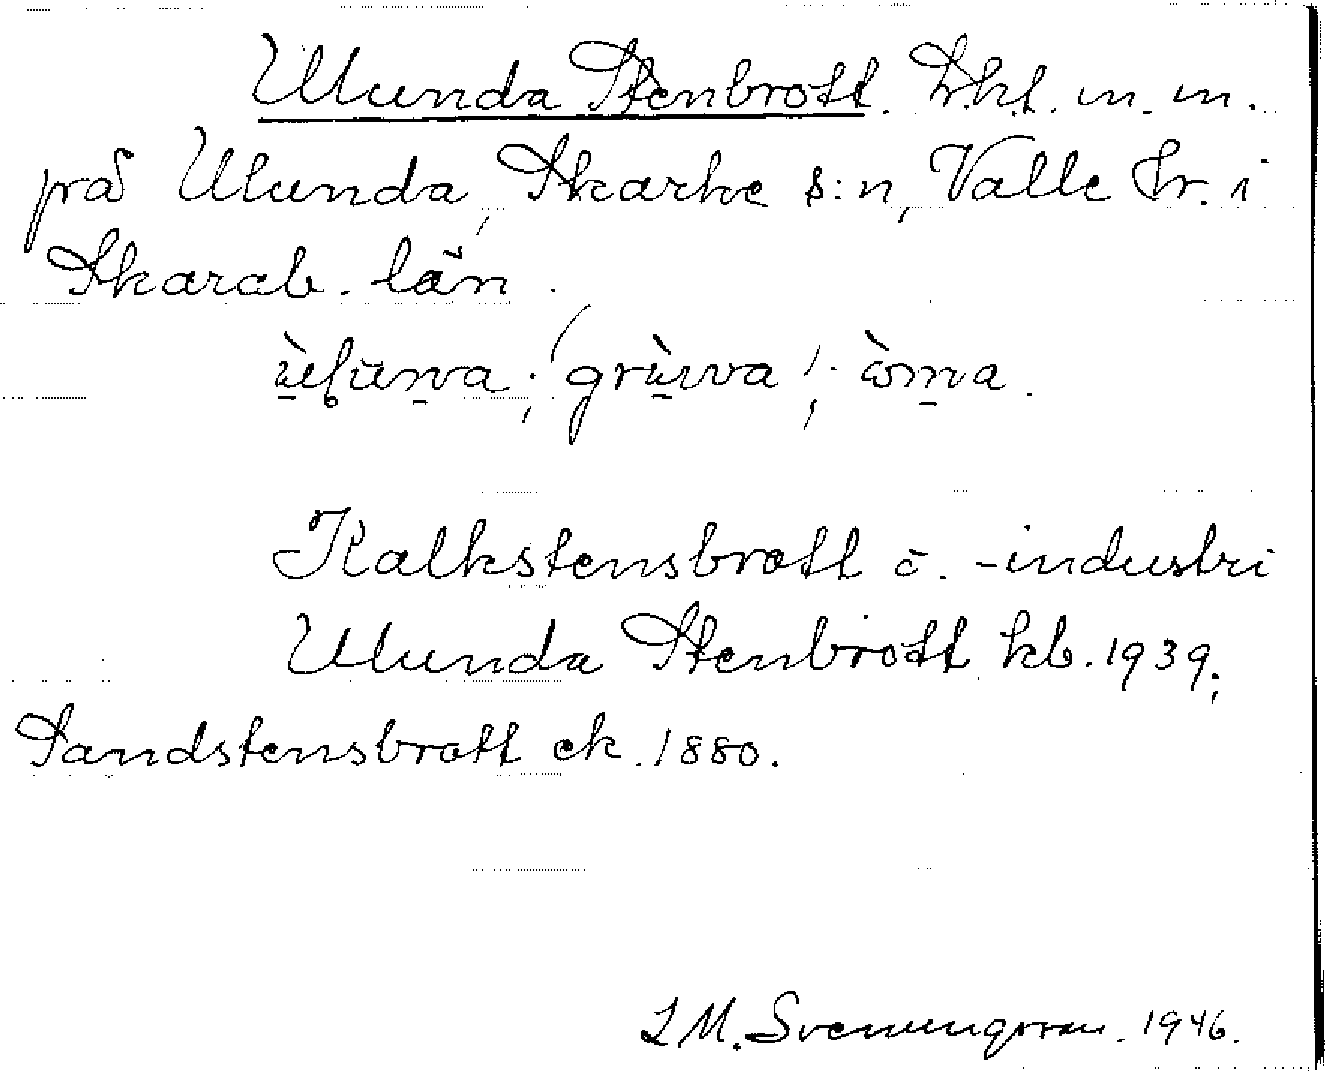 Ulunda Stenbrott. Lht. m. m.
på Ulunda, Skarke s:n, Valle Hr. i
Skarab. län.
grùvva
Kalkstensbrott o. -industri
Ulunda Stenbrott kb. 1939;
Sandstensbrott ek. 1880.
I M. Svenungsson. 1946.